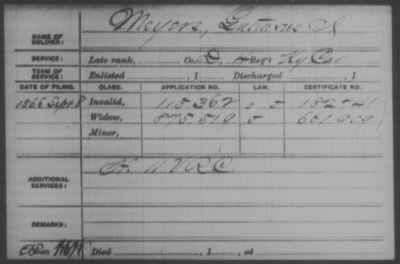 NAME OF SOLDIER: Meyers, Gustavus A
SERVICE: Late rank, Co. D, 4 Reg't Ky Cav
TERM OF SERVICE: Enlisted , 1 Discharged , 1
DATE OF FILING. CLASS. APPLICATION NO. LAW. CERTIFICATE NO.
1866 Sept 8 Invalid, 115.362
Widow, 875.519 601.919
Minor,
ADDITIONAL SERVICES: V.R.C.
REMARKS:
Died , 1 , at